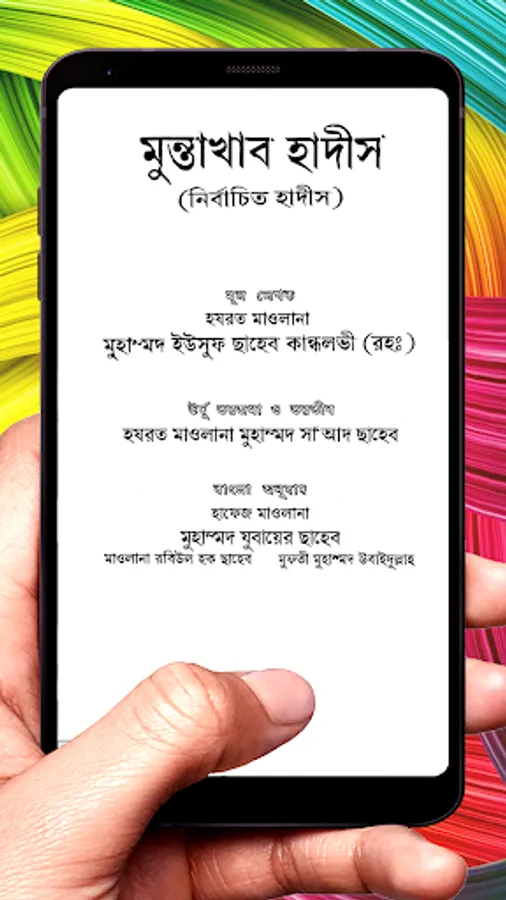 মুন্তাখাব হাদীস
(নির্বাচিত হাদীস)
মূল লেখক
হযরত মাওলানা
মুহাম্মদ ইউসুফ ছাহেব কান্ধলভী (রহঃ)
উর্দূ তরজমা ও তরতীব
হযরত মাওলানা মুহাম্মদ সা'আদ ছাহেব
বাংলা অনুবাদ
হাফেজ মাওলানা
মুহাম্মদ যুবায়ের ছাহেব
মাওলানা রবিউল হক ছাহেব মুফতী মুহাম্মদ উবাইদুল্লাহ